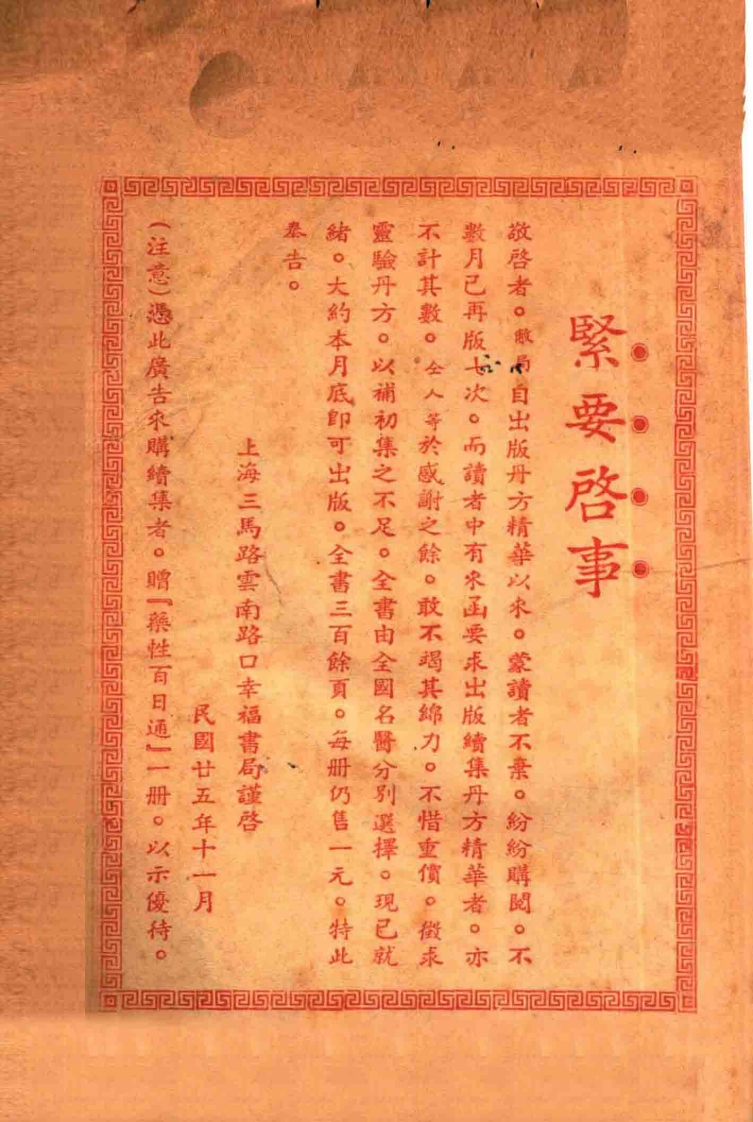 緊要啓事
敬啓者。敝局自出版丹方精華以來。蒙讀者不棄。紛紛購閱。不
數月已再版七次。而讀者中有來函要求出版續集丹方精華者。亦
不計其數。仝人等於感謝之餘。敢不竭其綿力。不惜重價。徵求
靈驗丹方。以補初集之不足。全書由全國名醫分別選擇。現已就
緒。大約本月底卽可出版。全書三百餘頁。每册仍售一元。特此
奉告。
上海三馬路雲南路口幸福書局謹啓
民國廿五年十一月
（注意）憑此廣告來購續集者。贈『藥性百日通』一册。以示優待。